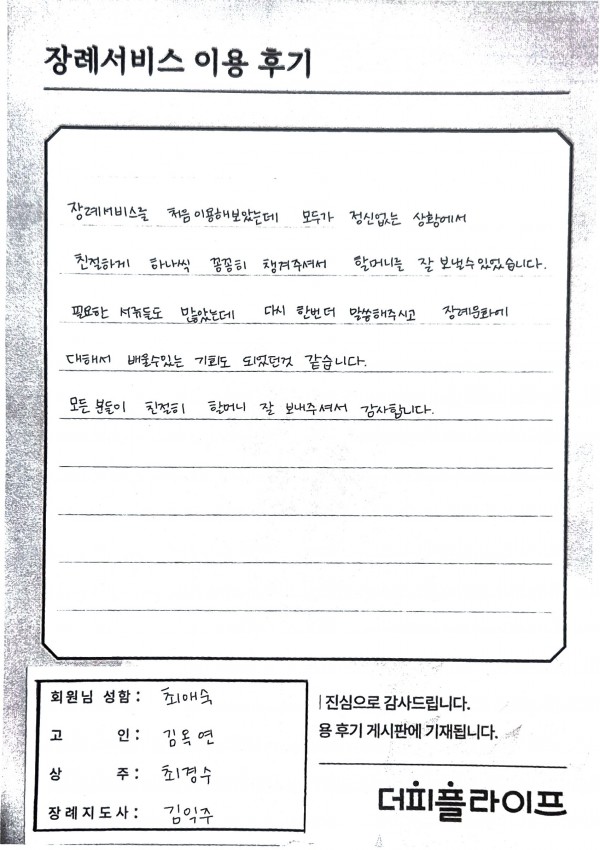 장례서비스 이용 후기
장례서비스를 처음이용해보았는데 모두가 정신없는 상황에서
친절하게 하나씩 꼼꼼히 챙겨주셔서 할머니를 잘 보낼수있었습니다.
필요한 서류들도 많았는데 다시 한번더 말씀해주시고 장례문화에
대해서 배울수있는 기회도 되었던것 같습니다.
모든 분들이 친절히 할머니 잘 보내주셔서 감사합니다.
회원님 성함 : 최애숙
고 인 : 김옥연
상 주 : 최경수
장례지도사 : 김익주
진심으로 감사드립니다.
용 후기 게시판에 기재됩니다.
더피플라이프